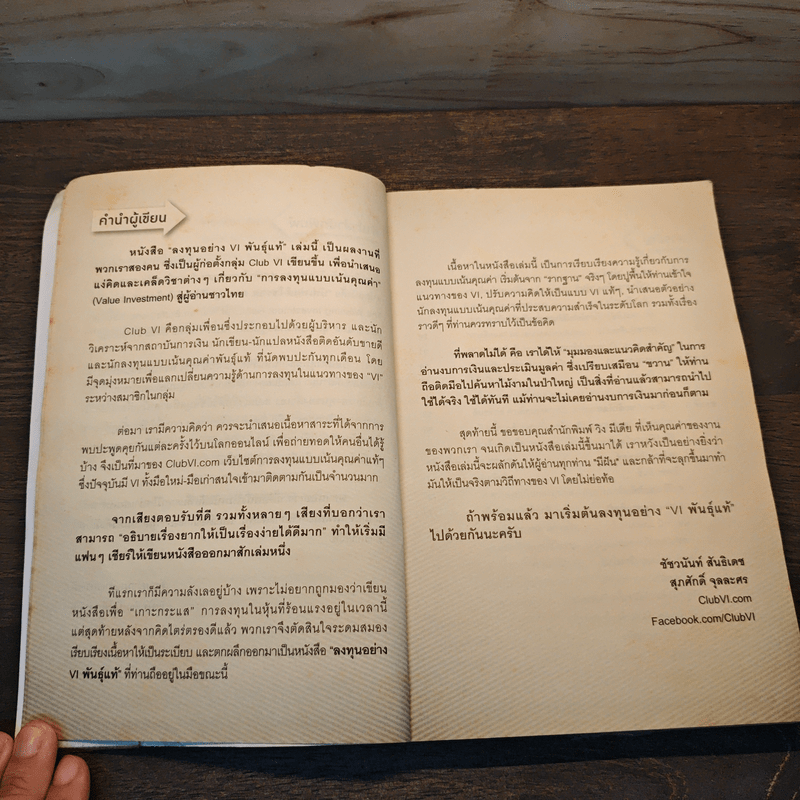 คำนำผู้เขียน
หนังสือ "ลงทุนอย่าง VI พันธุ์แท้" เล่มนี้ เป็นผลงานที่
พวกเราสองคน ซึ่งเป็นผู้ก่อตั้งกลุ่ม Club VI เขียนขึ้น เพื่อนำเสนอ
แง่คิดและเคล็ดวิชาต่างๆ เกี่ยวกับ "การลงทุนแบบเน้นคุณค่า"
(Value Investment) สู่ผู้อ่านชาวไทย
Club VI คือกลุ่มเพื่อนซึ่งประกอบไปด้วยผู้บริหาร และนัก
วิเคราะห์จากสถาบันการเงิน นักเขียน-นักแปลหนังสือติดอันดับขายดี
และนักลงทุนแบบเน้นคุณค่าพันธุ์แท้ ที่นัดพบปะกันทุกเดือน โดย
มีจุดมุ่งหมายเพื่อแลกเปลี่ยนความรู้ด้านการลงทุนในแนวทางของ "VI"
ระหว่างสมาชิกในกลุ่ม
ต่อมา เรามีความคิดว่า ควรจะนำเสนอเนื้อหาสาระที่ได้จากการ
พบปะพูดคุยกันแต่ละครั้งไว้บนโลกออนไลน์ เพื่อถ่ายทอดให้คนอื่นได้รู้
บ้าง จึงเป็นที่มาของ ClubVI.com เว็บไซต์การลงทุนแบบเน้นคุณค่าแท้ๆ
ซึ่งปัจจุบันมี VI ทั้งมือใหม่-มือเก่าสนใจเข้ามาติดตามกันเป็นจำนวนมาก
จากเสียงตอบรับที่ดี รวมทั้งหลายๆ เสียงที่บอกว่าเรา
สามารถ "อธิบายเรื่องยากให้เป็นเรื่องง่ายได้ดีมาก" ทำให้เริ่มมี
แฟนๆ เชียร์ให้เขียนหนังสือออกมาสักเล่มหนึ่ง
ทีแรกเราก็มีความลังเลอยู่บ้าง เพราะไม่อยากถูกมองว่าเขียน
หนังสือเพื่อ "เกาะกระแส" การลงทุนในหุ้นที่ร้อนแรงอยู่ในเวลานี้
แต่สุดท้ายหลังจากคิดไตร่ตรองดีแล้ว พวกเราจึงตัดสินใจระดมสมอง
เรียบเรียงเนื้อหาให้เป็นระเบียบ และตกผลึกออกมาเป็นหนังสือ "ลงทุนอย่าง
VI พันธุ์แท้" ที่ท่านถืออยู่ในมือขณะนี้
เนื้อหาในหนังสือเล่มนี้ เป็นการเรียบเรียงความรู้เกี่ยวกับการ
ลงทุนแบบเน้นคุณค่า เริ่มต้นจาก "รากฐาน" จริงๆ โดยปูพื้นให้ท่านเข้าใจ
แนวทางของ VI, ปรับความคิดให้เป็นแบบ VI แท้ๆ, นำเสนอตัวอย่าง
นักลงทุนแบบเน้นคุณค่าที่ประสบความสำเร็จในระดับโลก รวมทั้งเรื่อง
ราวดีๆ ที่ท่านควรทราบไว้เป็นข้อคิด
ที่พลาดไม่ได้ คือ เราได้ให้ "มุมมองและแนวคิดสำคัญ" ในการ
อ่านงบการเงินและประเมินมูลค่า ซึ่งเปรียบเสมือน "ขวาน" ให้ท่าน
ถือติดมือไปค้นหาไม้งามในป่าใหญ่ เป็นสิ่งที่อ่านแล้วสามารถนำไป
ใช้ได้จริง ใช้ได้ทันที แม้ท่านจะไม่เคยอ่านงบการเงินมาก่อนก็ตาม
สุดท้ายนี้ ขอขอบคุณสำนักพิมพ์ วิง มีเดีย ที่เห็นคุณค่าของงาน
ของพวกเรา จนเกิดเป็นหนังสือเล่มนี้ขึ้นมาได้ เราหวังเป็นอย่างยิ่งว่า
หนังสือเล่มนี้จะผลักดันให้ผู้อ่านทุกท่าน "มีฝัน" และกล้าที่จะลุกขึ้นมาทำ
มันให้เป็นจริงตามวิถีทางของ VI โดยไม่ย่อท้อ
ถ้าพร้อมแล้ว มาเริ่มต้นลงทุนอย่าง "VI พันธุ์แท้"
ไปด้วยกันนะครับ
ชัชวนันท์ สันธิเดช
สุภศักดิ์ จุลละศร
ClubVI.com
Facebook.com/ClubVI